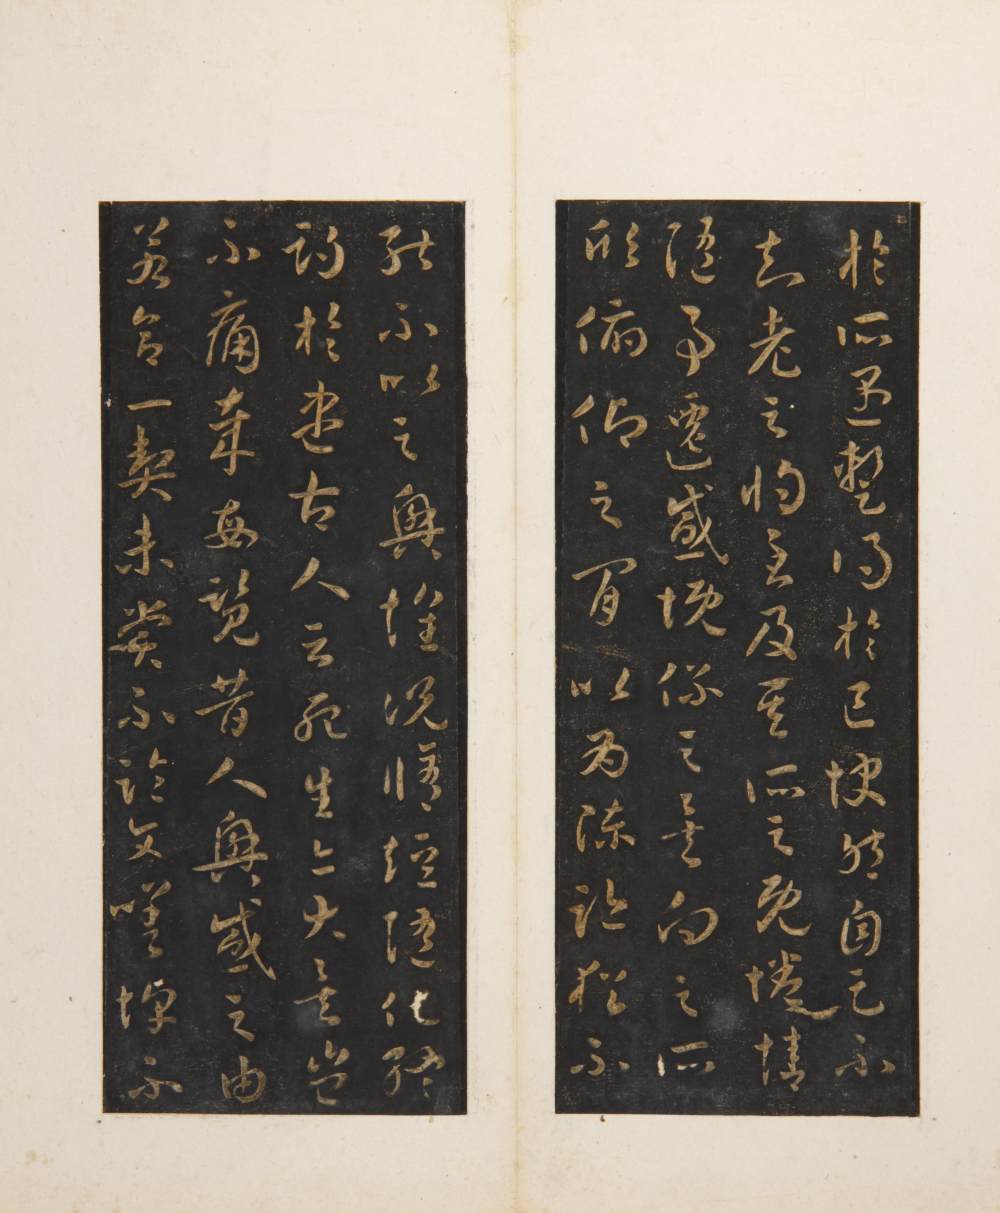 於所遇暫得於己快然自足不
知老之將至及其所之既惓情
隨事遷感慨係之矣向之所
欣俯仰之間以為陳跡猶不
能不以之興懷況脩短隨化終
期於盡古人云死生亦大矣豈
不痛哉每覽昔人興感之由
若合一契未嘗不臨文嗟悼不